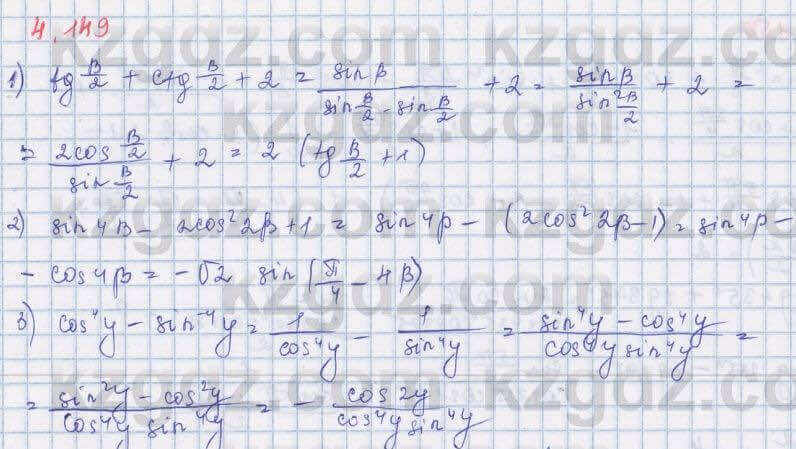 4.149
1) tg β/2 + ctg β/2 + 2 = sinβ / (sin β/2 - sin β/2) + 2 = sinβ / sin² β/2 + 2 =
= 2cos β/2 / sin β/2 + 2 = 2 (tg β/2 + 1)
2) sin 4β - 2cos² 2β + 1 = sin 4β - (2cos² 2β - 1) = sin 4β -
- cos 4β = - √2 sin (π/4 - 4β)
3) cos⁴y - sin⁻⁴y = 1/cos⁴y - 1/sin⁴y = (sin⁴y - cos⁴y) / (cos⁴y sin⁴y) =
= (sin²y - cos²y) / (cos⁴y sin⁴y) = - cos2y / (cos⁴y sin⁴y)
kzgdz.com
kzgdz.com
kzgdz.com
kzgdz.com
kzgdz.com